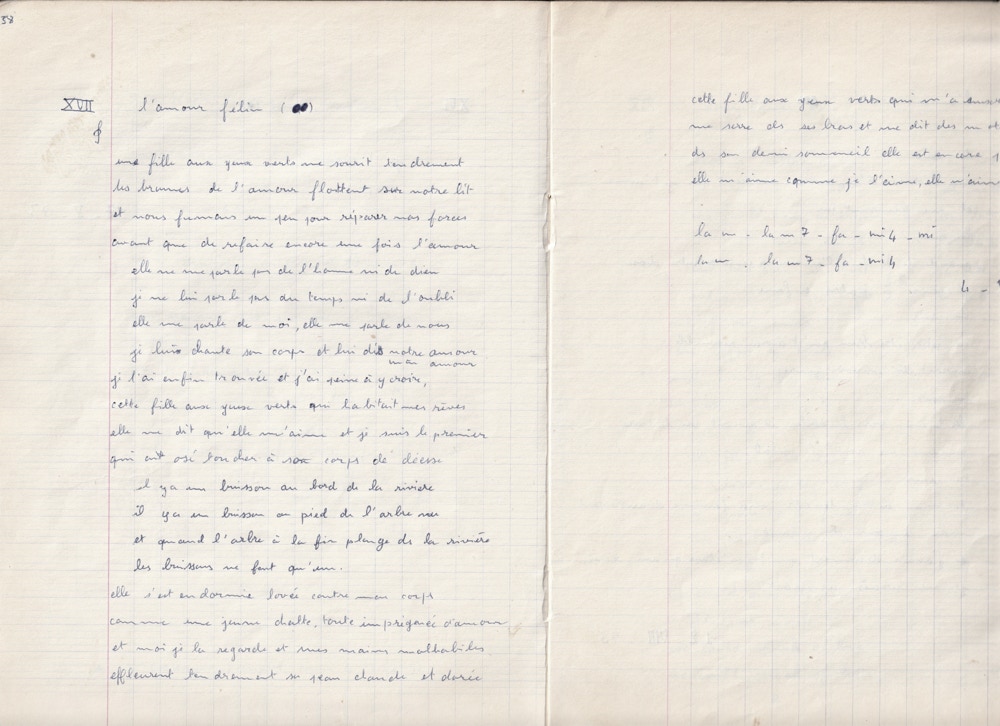 38
XVII l'amour félin ( )
une fille aux yeux verts me sourit tendrement
les brumes de l'amour flottent sur notre lit
et nous fumons un peu pour réparer nos forces
avant que de refaire encore une fois l'amour
elle ne me parle pas de l'homme ni de dieu
je ne lui parle pas du temps ni de l'oubli
elle me parle de moi, elle me parle de nous
je lui chante son corps et lui dis notre amour
mon amour
je l'ai enfin trouvée et j'ai peine à y croire,
cette fille aux yeux verts qui habitait mes rêves
elle me dit qu'elle m'aime et je suis le premier
qui ait osé toucher à son corps de déesse
il y a un buisson au bord de la rivière
il y a un buisson au pied de l'arbre nu
et quand l'arbre à la fin plonge ds la rivière
les buissons ne font qu'un.
elle s'est endormie lovée contre mon corps
comme une jeune chatte, toute imprégnée d'amour
et moi je la regarde et mes mains malhabiles
effleurent tendrement sa peau chaude et dorée
cette fille aux yeux verts qui m'a
me serre ds ses bras et me dit des
ds son demi sommeil elle est encore
elle m'aime comme je l'aime, elle m'aime
la m - la m 7 - fa - mi 4 - mi
la m - la m 7 - fa - mi 4
4 -